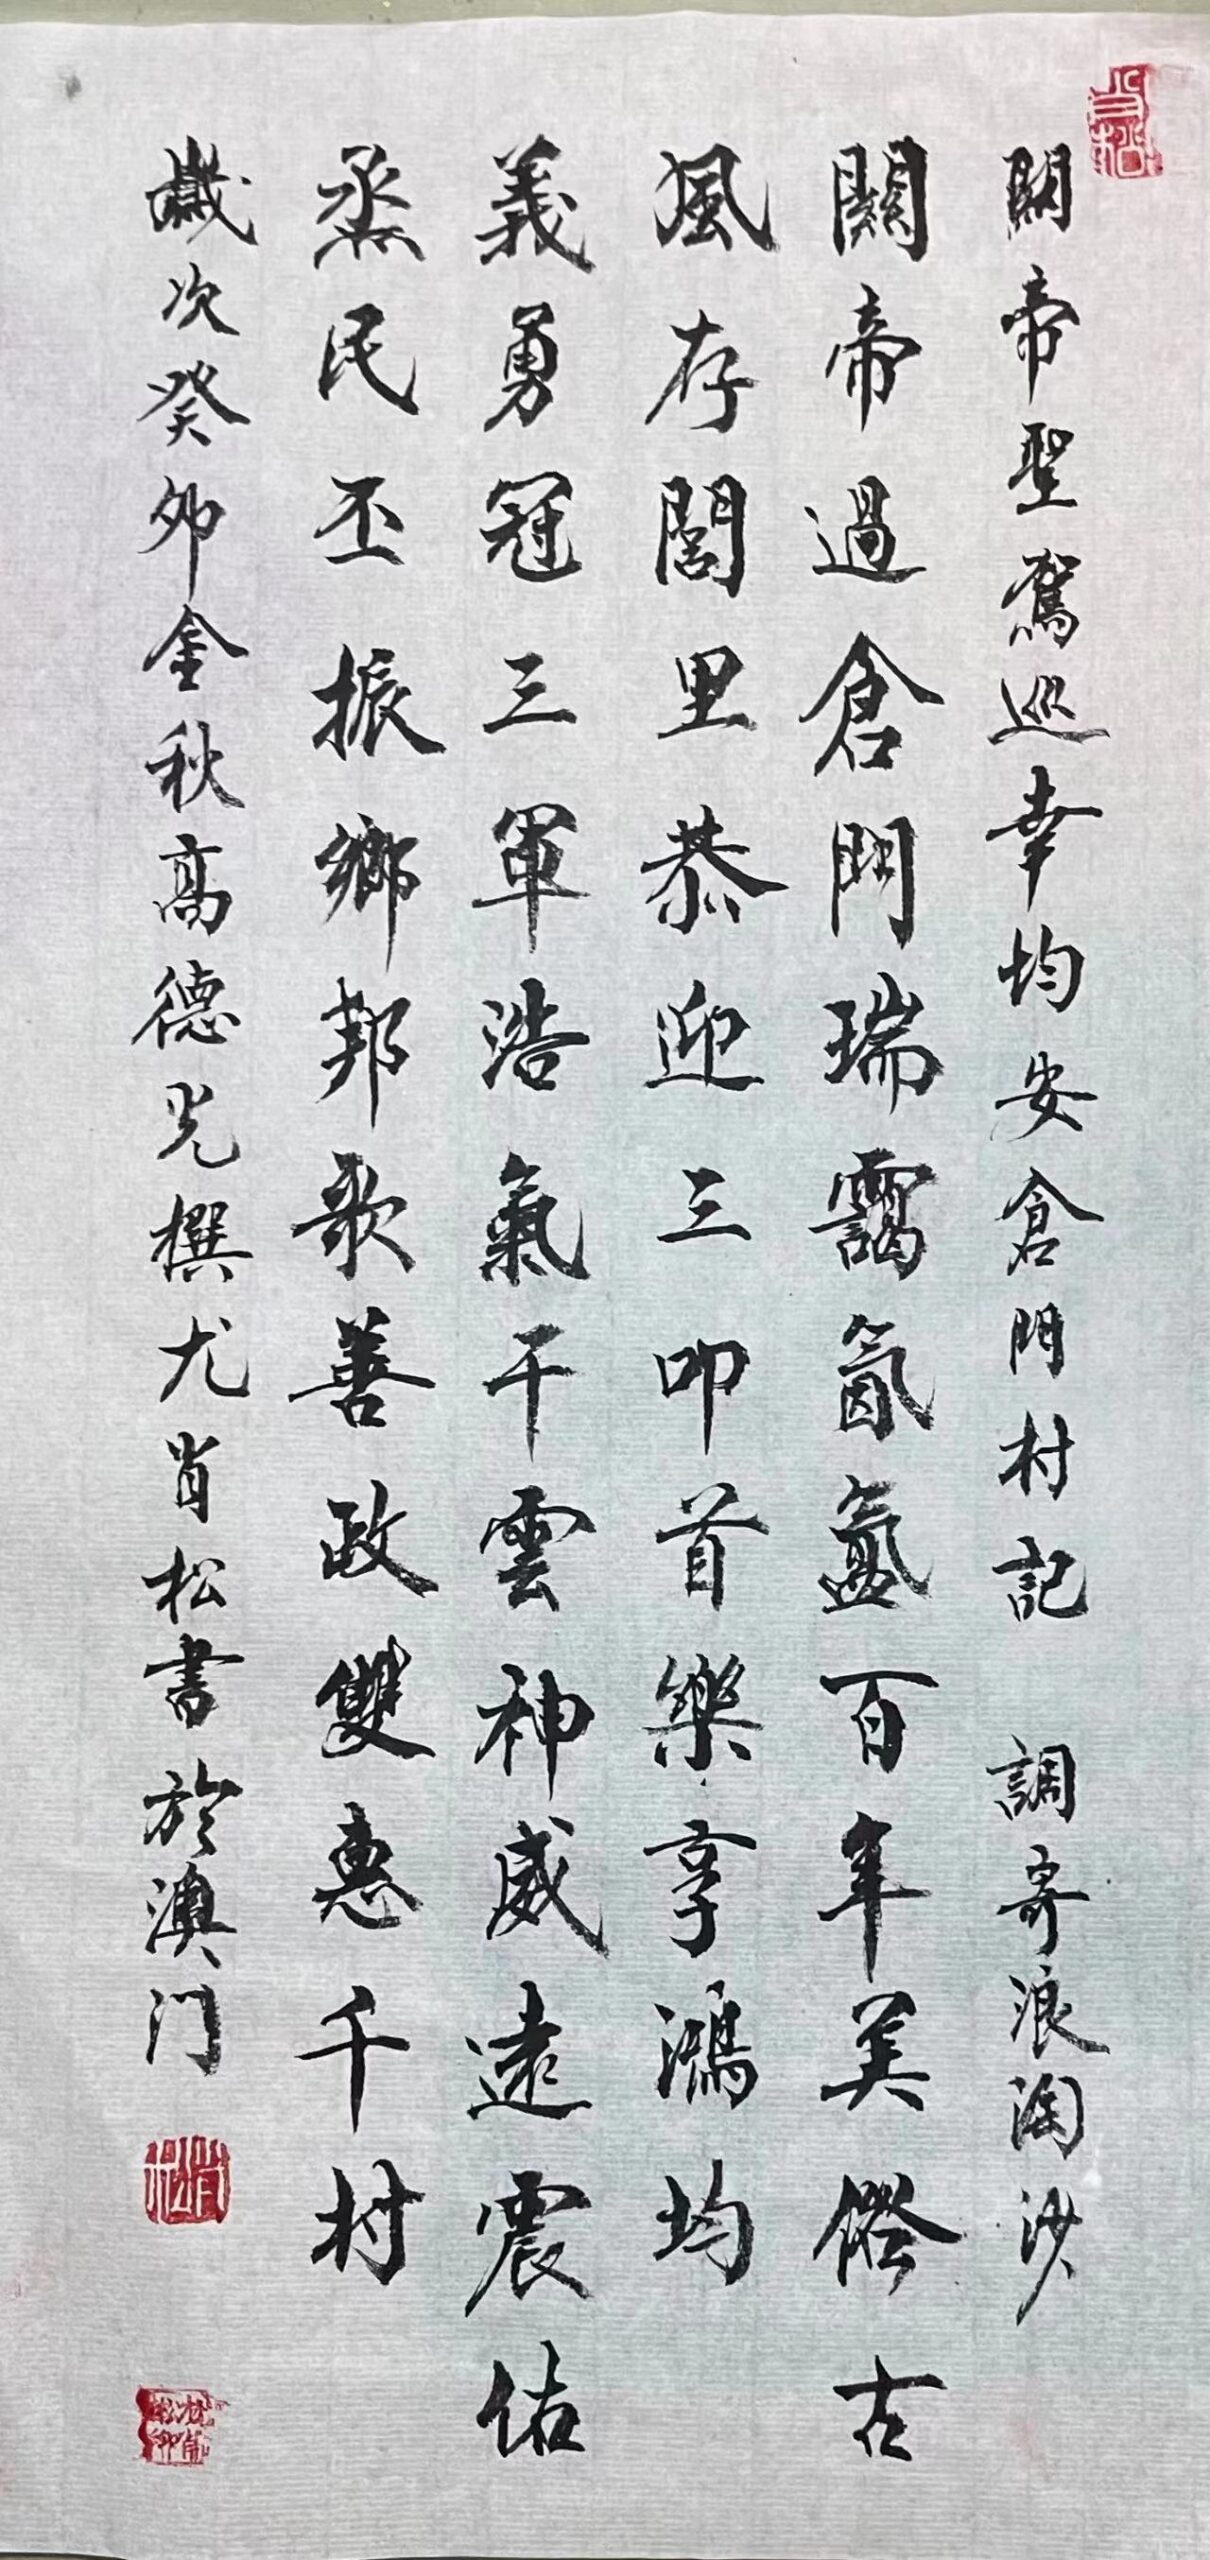 關帝聖駕巡幸均安倉門村記 調寄浪淘沙
關帝過倉門瑞靄氤氳百年美俗古
風存閭里恭迎三叩首樂享鴻均
義勇冠三軍浩氣干雲神威遠震佑
烝民丕振鄉邦歌善政雙惠千村
歲次癸卯金秋高德光撰尤肖松書於澳门
肖松